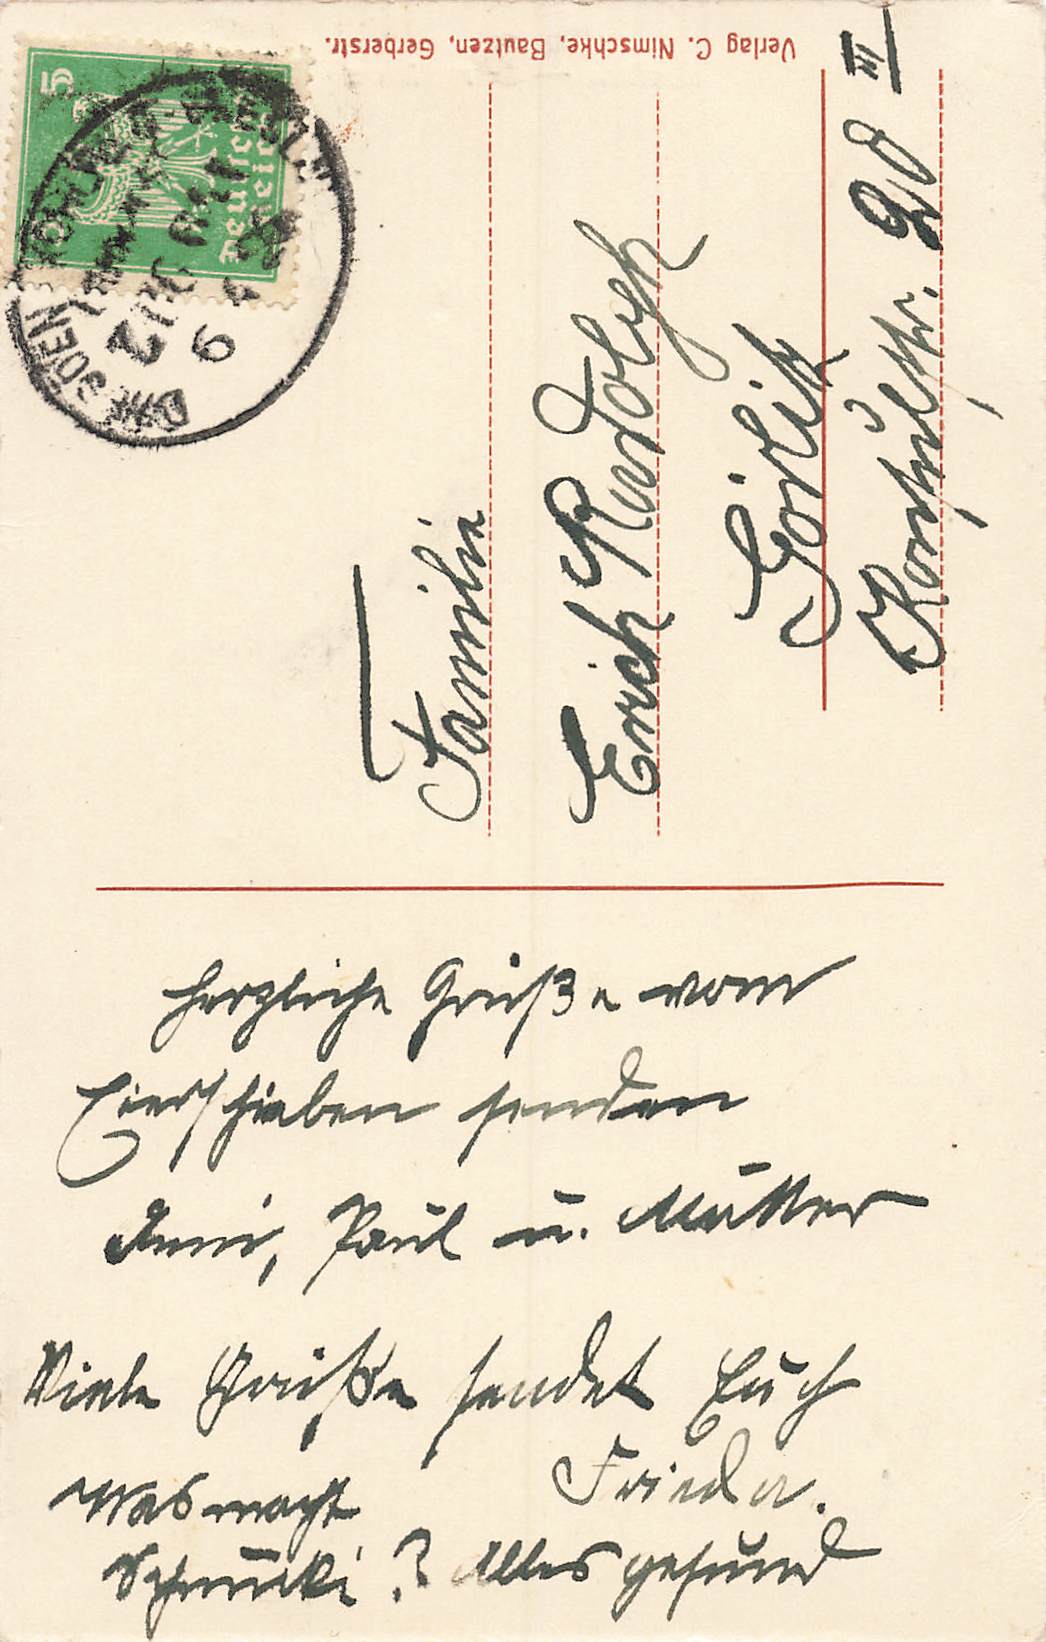 Verlag C. Nimschke, Bautzen, Gerberstr.
5
Deutsches
Reich
DRESDEN
Familie
Erich Rudolph
Görlitz
Konsulstr. 20 III
Herzliche Grüße vom
Eierschieben senden
Anni, Paul u. Mutter
Viele Grüße sendet Euch
Frieda.
Was macht
Schnucki? Alles gesund